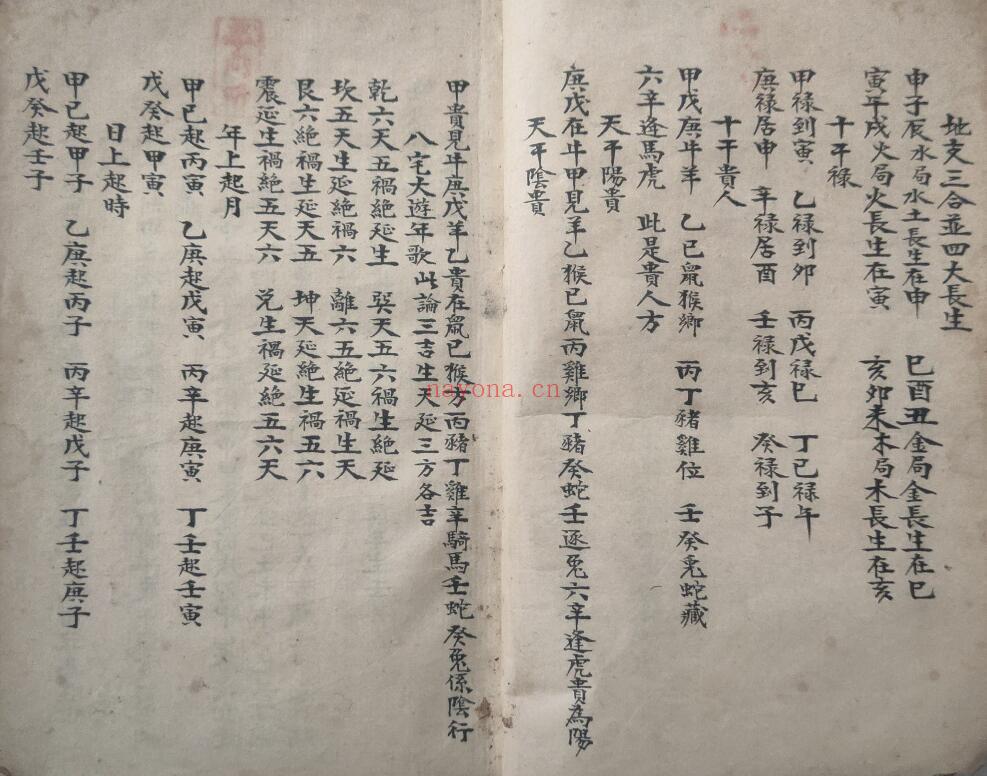 地支三合並四大長生
申子辰水局水土長生在申 巳酉丑金局金長生在巳
寅午戌火局火長生在寅 亥卯未木局木長生在亥
十干祿
甲禄到寅 乙禄到卯 丙戊禄巳 丁己禄午
庚禄居申 辛禄居酉 壬禄到亥 癸禄到子
十干貴人
甲戊庚牛羊 乙己鼠猴鄉 丙丁豬雞位 壬癸兎蛇藏
六辛逢馬虎 此是貴人方
天干陽貴
庚戊在牛甲見羊乙猴己鼠丙雞鄉丁豬癸蛇壬逐兎六辛逢虎貴為陽
天干陰貴
甲貴見牛庚戊羊乙貴在鼠己猴方丙豬丁雞辛騎馬壬蛇癸兎係陰行
八宅大遊年歌此論三吉生天延三方各吉
乾六天五禍絶延生 巽天五六禍生絶延
坎五天生延絶禍六 離六五絶延禍生天
艮六絶禍生延天五 坤天延絶生禍五六
震延生禍絶五天六 兑生禍延絶五六天
年上起月
甲己起丙寅 乙庚起戊寅 丙辛起庚寅 丁壬起壬寅
戊癸起甲寅
日上起時
甲己起甲子 乙庚起丙子 丙辛起戊子 丁壬起庚子
戊癸起壬子
nayona.cn